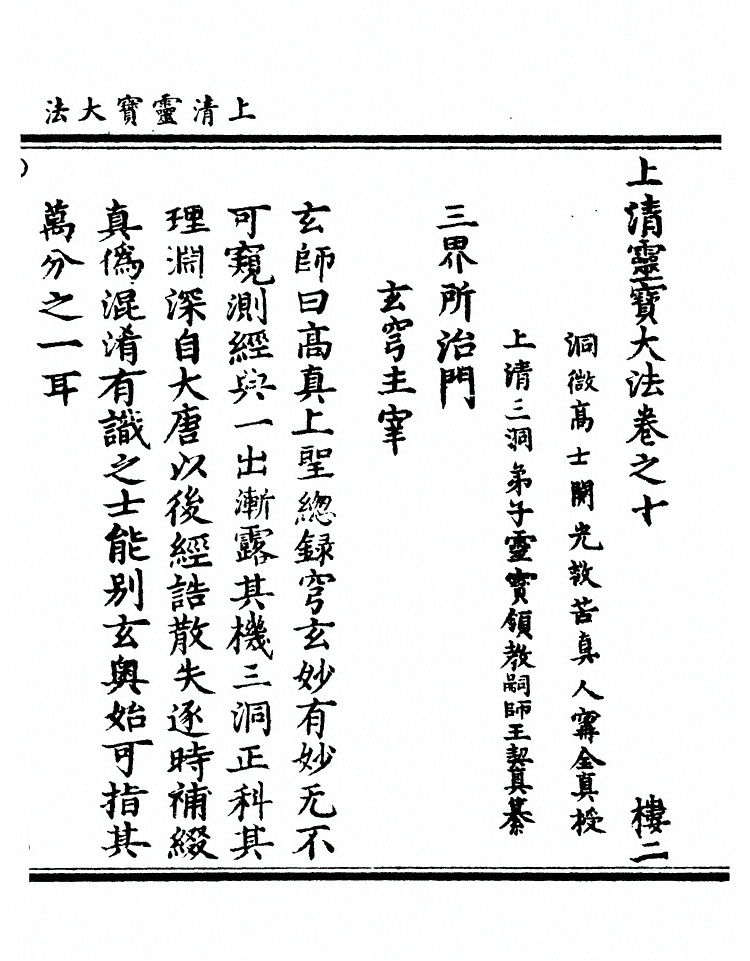 上清靈寶大法
上清靈寶大法卷之十 樓二
洞微高士開光救苦真人甯全真授
上清三洞弟子靈寶領教嗣師王契真纂
三界所治門
玄穹主宰
玄師曰高真上聖總録穹玄妙有妙无不
可窺測經典一出漸露其機三洞正科其
理淵深自大唐以後經誥散失逐時補綴
真僞混淆有識之士能别玄奥始可指其
萬分之一耳